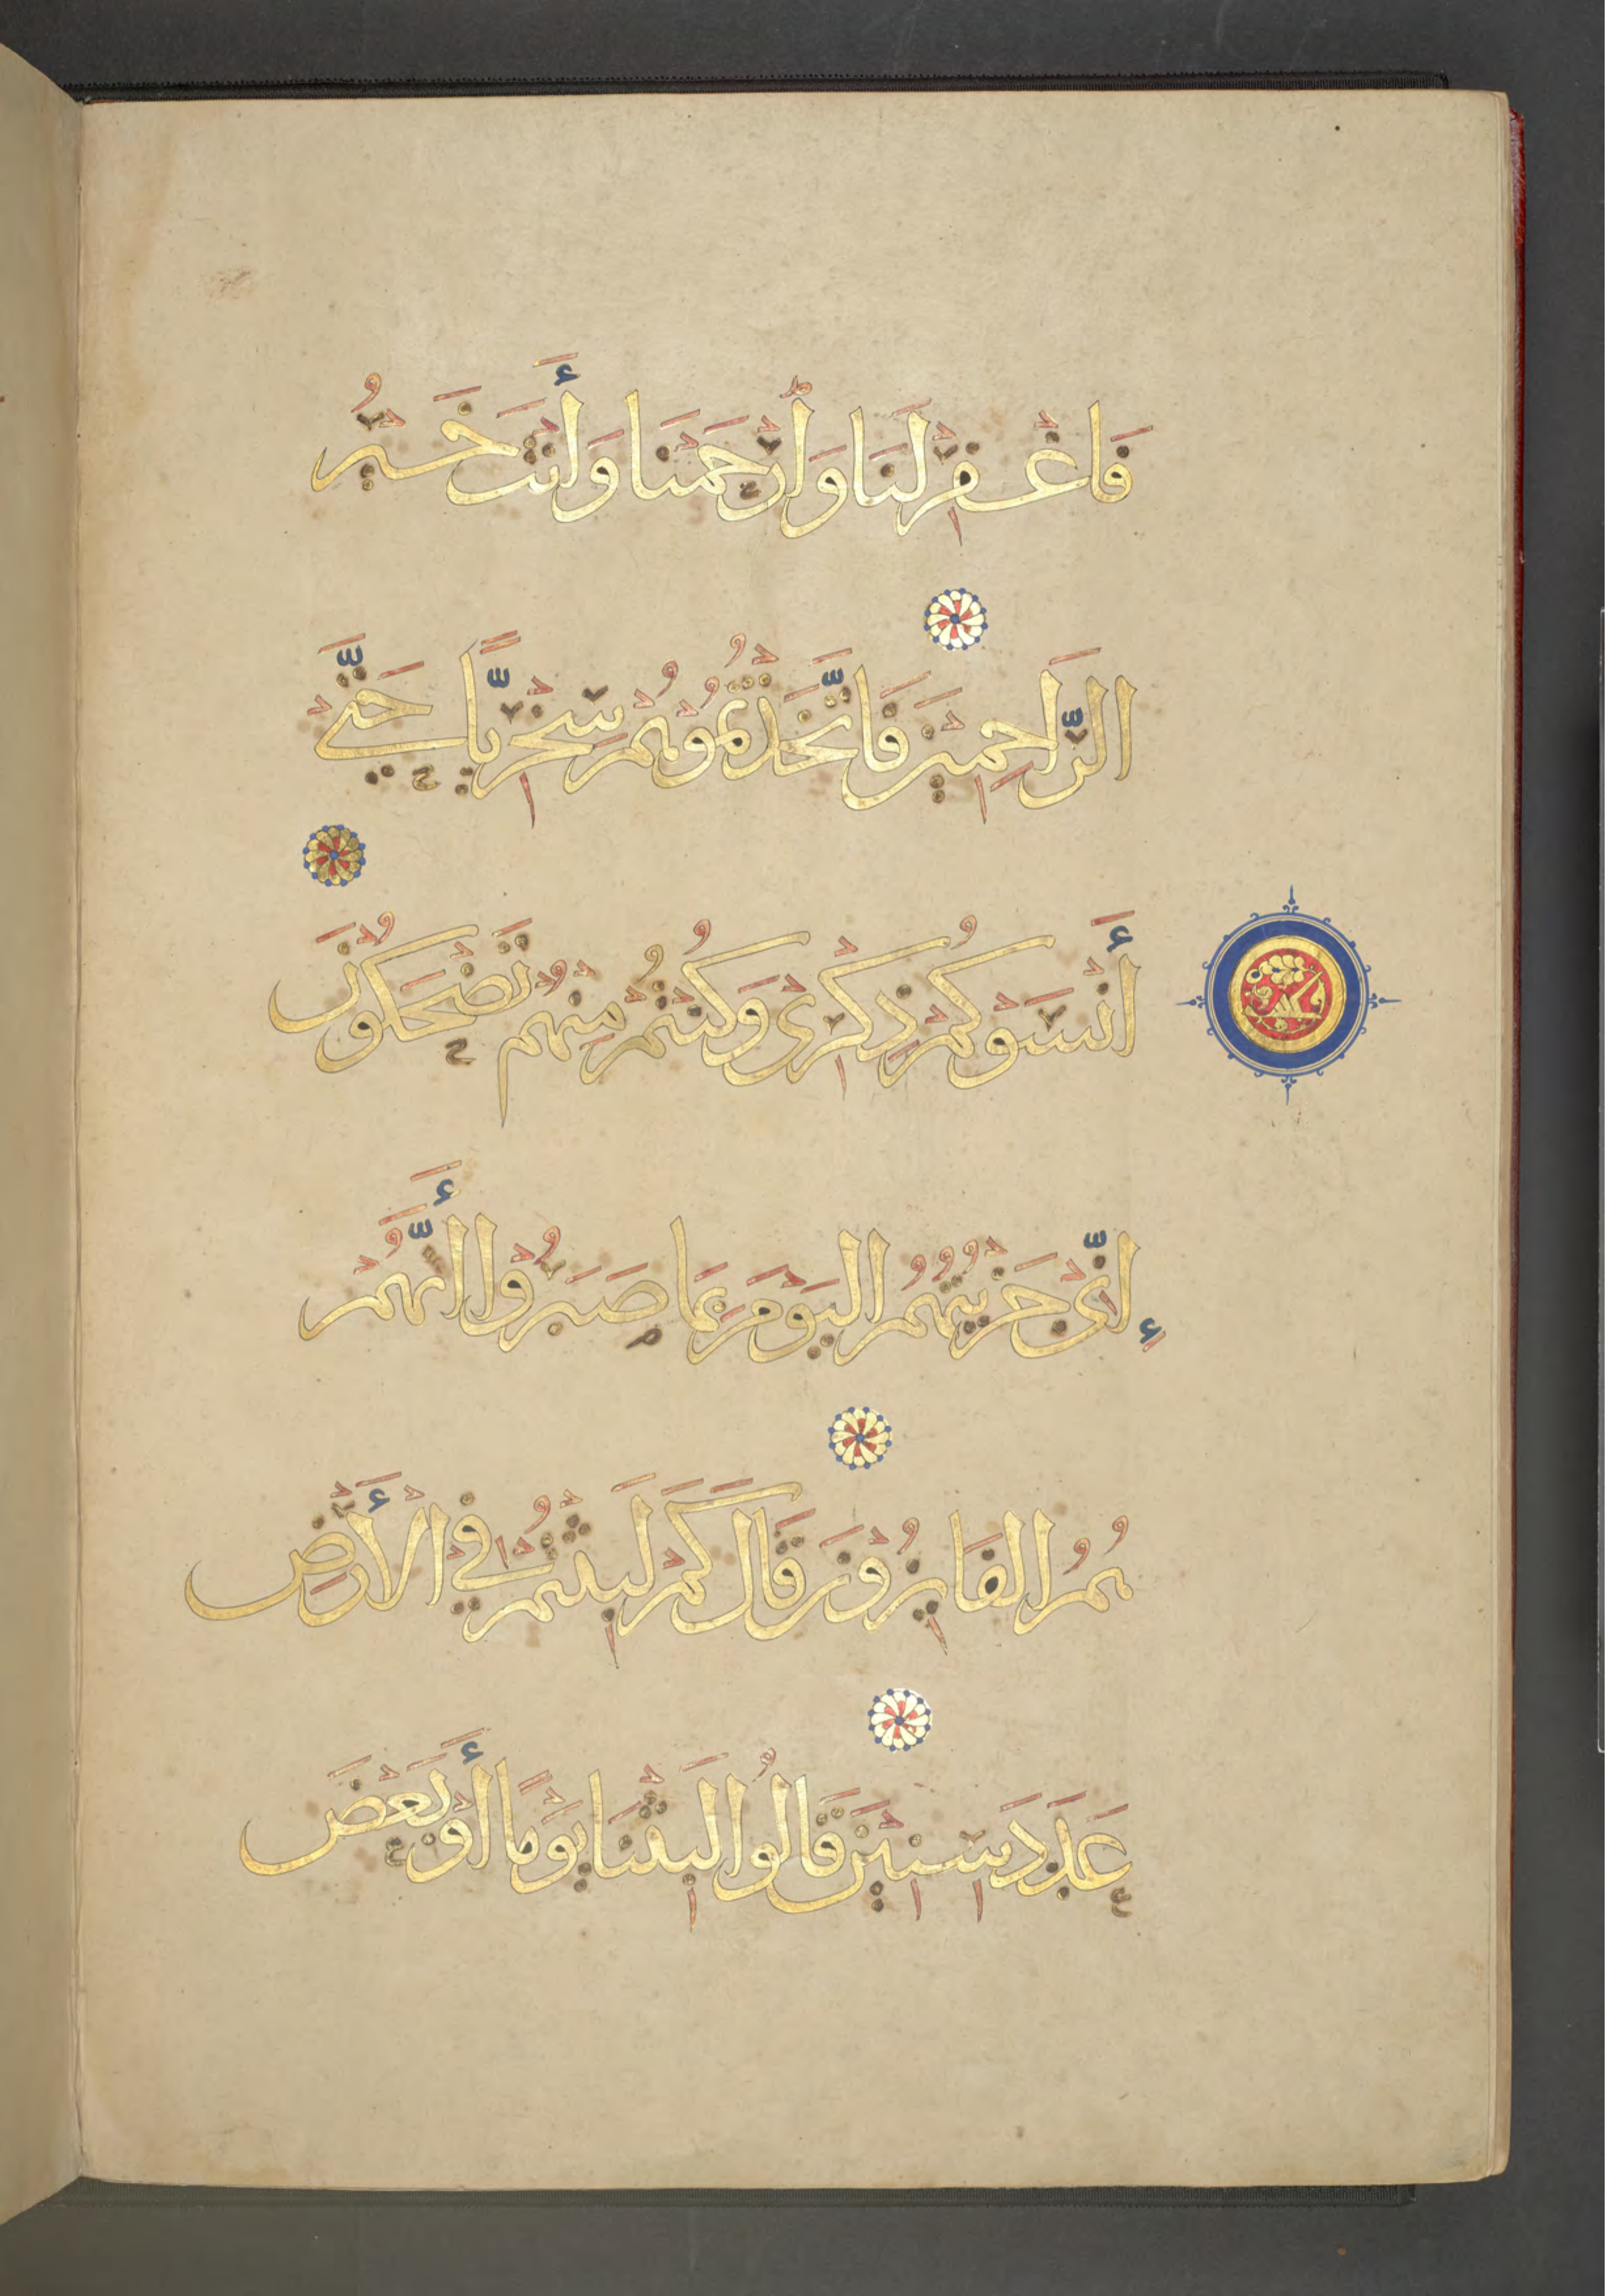 فَاغْفِرْ لَنَا وَارْحَمْنَا وَأَنْتَ خَيْرُ
الرَّاحِمِينَ فَاتَّخَذْتُمُوهُمْ سِخْرِيًّا حَتَّى
أَنْسَوْكُمْ ذِكْرِى وَكُنْتُمْ مِنْهُمْ تَضْحَكُونَ
إِنِّى جَزَيْتُهُمُ الْيَوْمَ بِمَا صَبَرُوا أَنَّهُمْ
هُمُ الْفَائِزُونَ قَالَ كَمْ لَبِثْتُمْ فِي الْأَرْضِ
عَدَدَ سِنِينَ قَالُوا لَبِثْنَا يَوْمًا أَوْ بَعْضَ